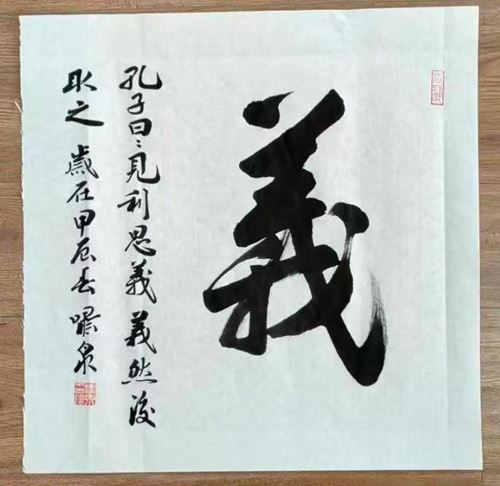 義
孔子曰:見利思義義然後
取之歲在甲辰春